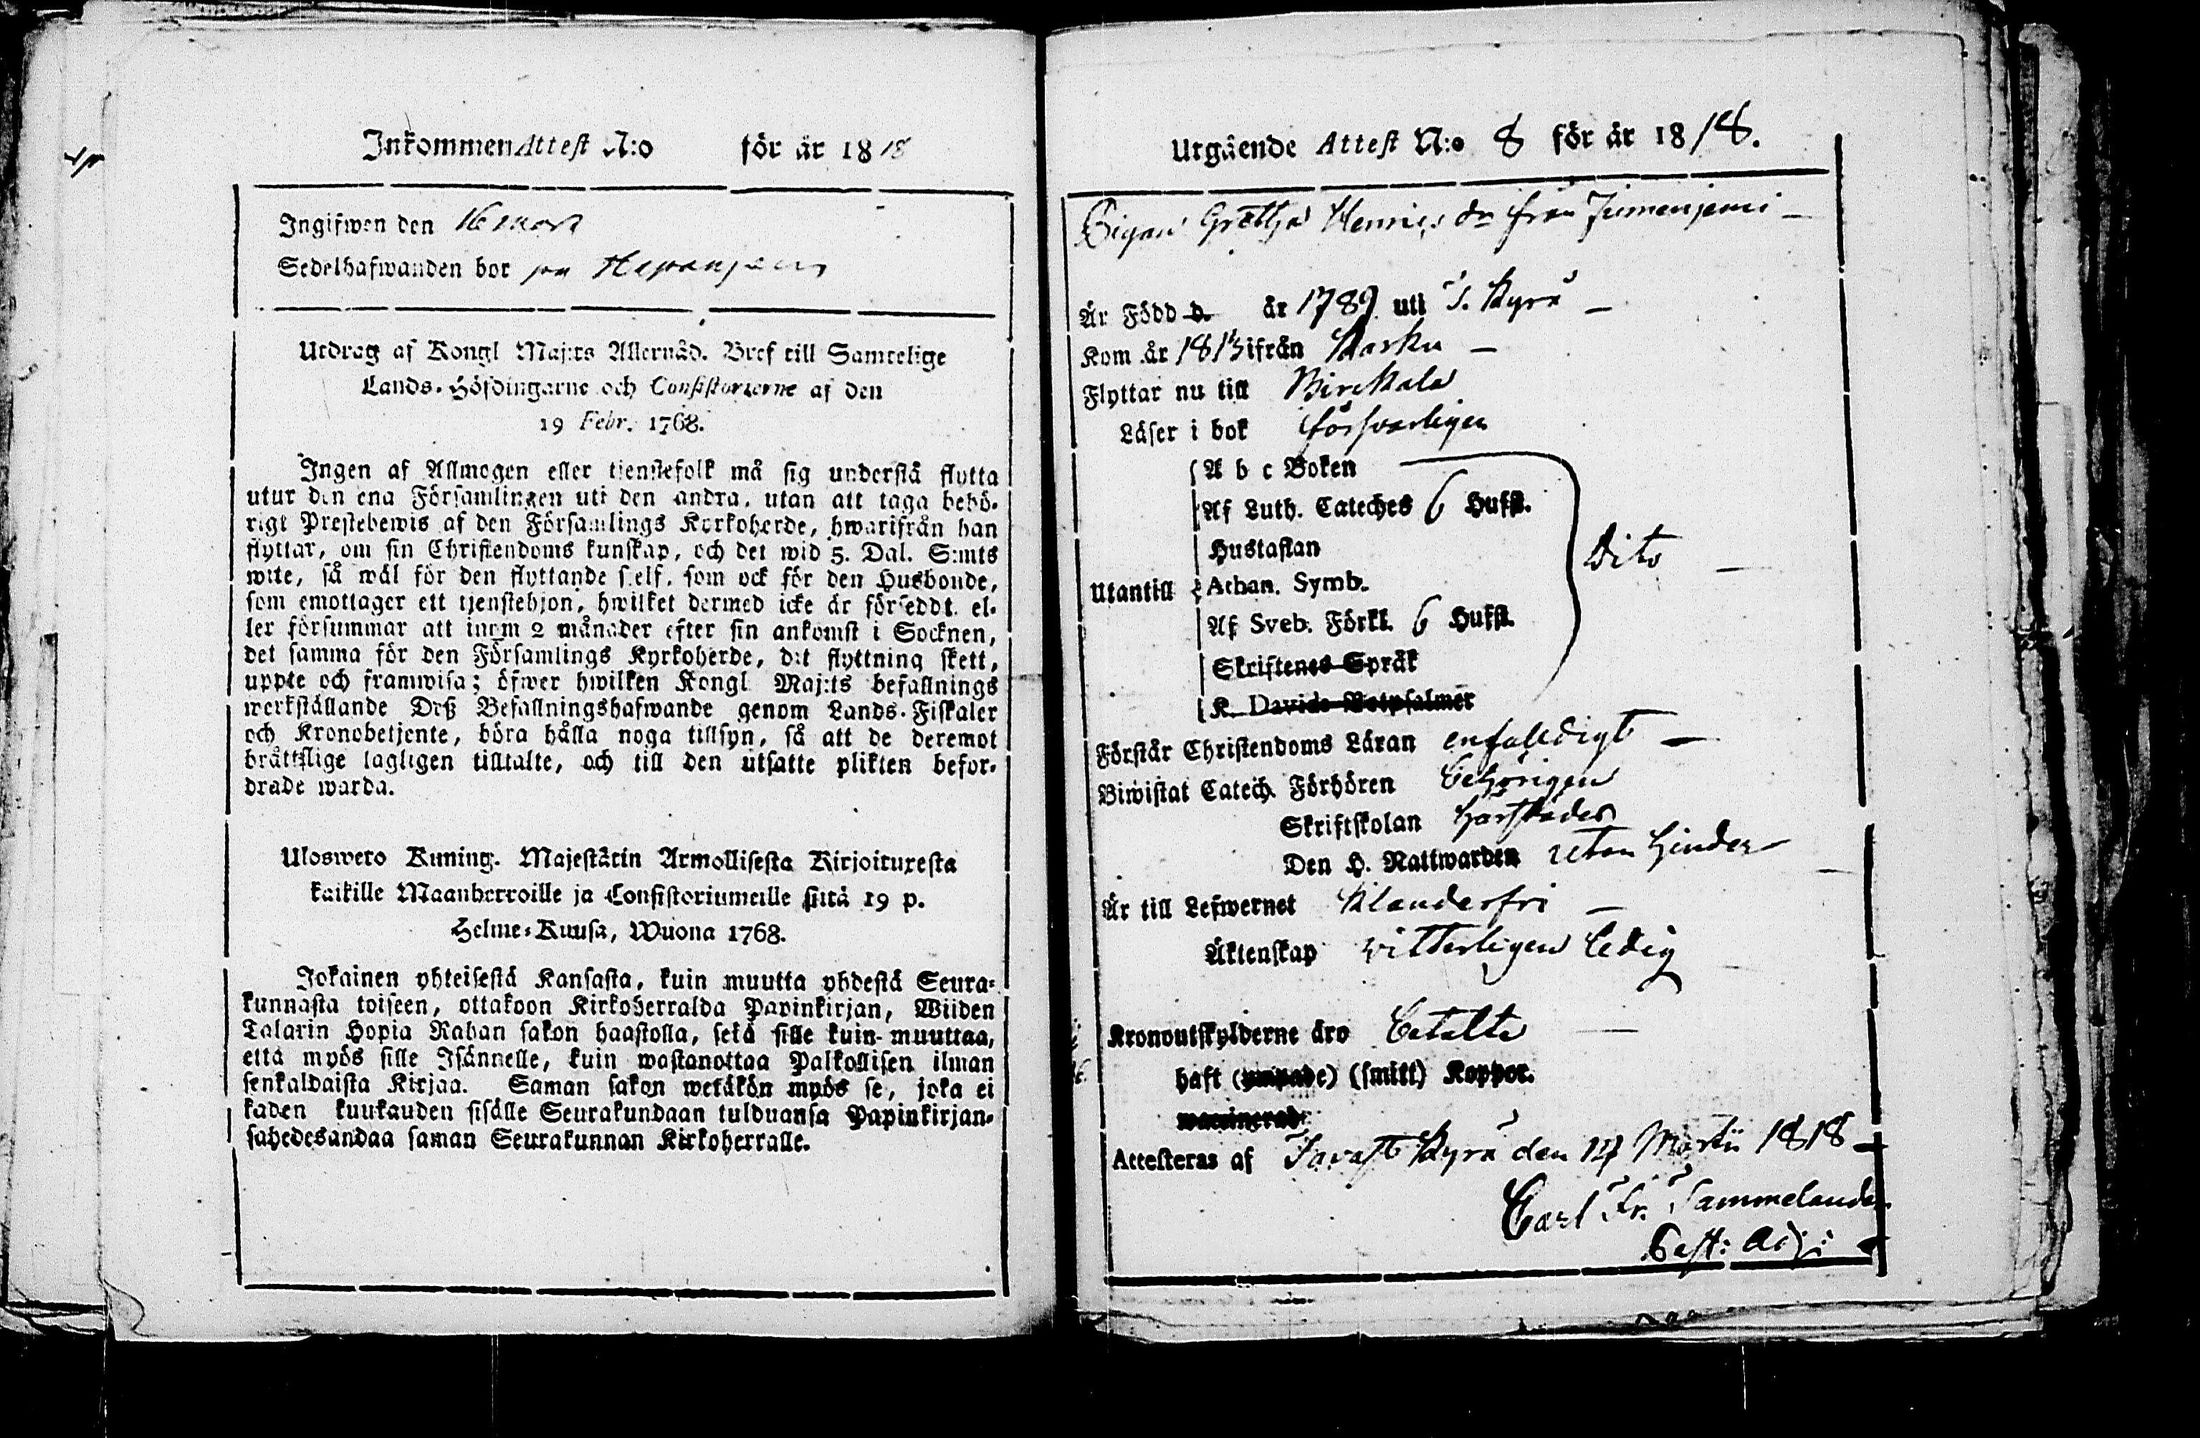 Inkommen Attest N:o för år 1818
Ingifwen den 16 mars
Sedelhafwanden bor på
Utdrag af Kongl Maj:ts Allernåd. Bref till Samtelige
Lands-Höfdingarne och Consistorierne af den
19 Febr. 1768.
Ingen af Allmogen eller tjenstefolk må sig understå flytta
utur den ena Församlingen uti den andra, utan att taga behö-
rigt Prestebewis af den Församlings Kyrkoherde, hwarifrån han
flyttar, om sin Christendoms kunskap, och det wid 5. Dal. S:mts
wite, så wäl för den flyttande sielf, som ock för den Husbonde,
som emottager ett tjenstehjon, hwilket dermed icke är förseddt, el-
ler försummar att inom 2 månader efter sin ankomst i Socknen,
det samma för den Församlings Kyrkoherde, dit flyttning skett,
uppte och framwisa; öfwer hwilken Kongl Maj:ts befallnings
werkställande Deß Befallningshafwande genom Lands-Fiskaler
och Kronobetjente, böra hålla noga tillsyn, så att de deremot
bråttslige lagligen tilltalte, och till den utsatte plikten befor-
drade warda.
Uloswero Kuning. Majestätin Armollisesta Kirjoituxesta
kaikille Maanherroille ja Consistoriumeille siitä 19 p.
Helme-Kuusa, Wuona 1768.
Jokainen yhteisestä Kansasta, kuin muutta yhdestä Seura-
kunnasta toiseen, ottakoon Kirkoherralda Papinkirjan, Wiiden
Talarin Hopia Rahan sakon haastolla, sekä sille kuin muuttaa,
että myös sille Isännelle, kuin wastanottaa Palkollisen ilman
senkaldaista Kirjaa. Saman sakon wetäkön myös se, joka ei
kaden kuukauden sisälle Seurakundaan tulduansa Papinkirjan-
sahedesandaa saman Seurakunnan Kirkoherralle.
Utgående Attest N:o 8 för år 1818.
Pigan Gretha Henrics dr från Jumenjemi
Är Född d. år 1789 uti T. Kyrö
Kom år 1813 ifrån Karku
Flyttar nu till Birckala
Läser i bok försvarligen
A b c Boken
Af Luth. Cateches 6 Hufst.
Hustaflan
Dito
Utantill Athan. Symb.
Af Sveb. Förkl. 6 Hufst.
Skriftenes Språk
K. Davids Botpsalmer
Förstår Christendoms Läran enfaldigt
Biwistat Catech. Förhören behörigen
Skriftskolan
Den H. Nattwarden utan hinder
Är till Lefwernet Klanderfri
Äktenskap vitterligen ledig
Kronoutskylderne äro betalte
haft (ympade) (smitt) Koppor.
waccinerad
Attesteras af Tavast Kyrö den 14 Martii 1818
Carl Fr. Sammelander
Past: Adj: